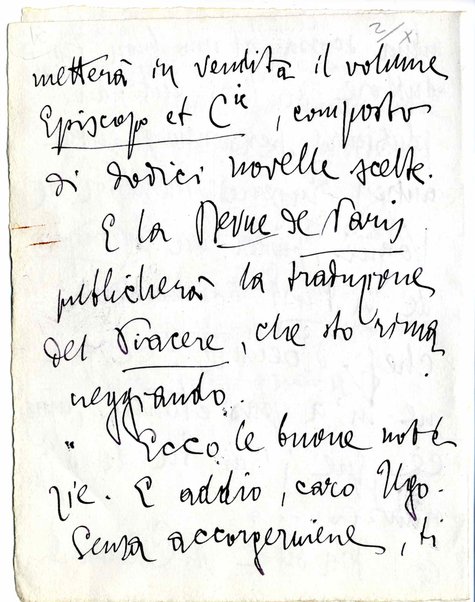 2/X
metterà in vendita il volume
Episcopo et Cie, composto
di dodici novelle scelte.
E la Revue de Paris
pubblicherà la traduzione
del Piacere, che sto rima
neggiando.
Ecco le buone noti
zie. E addio, caro Ugo.
Senza accorgermene, ti